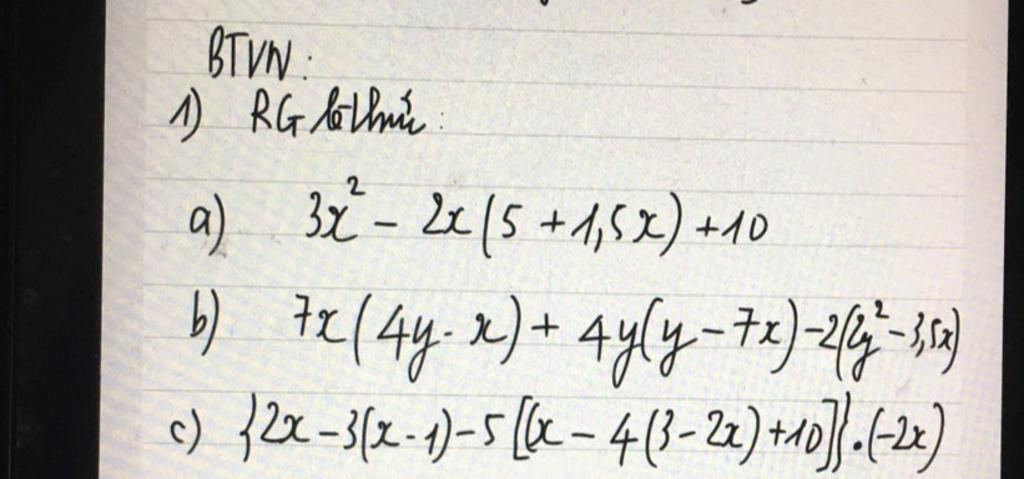 BTVN:
1) RG bthức:
a) 3x² - 2x(5 + 1,5x) + 10
b) 7x(4y - x) + 4y(y - 7x) - 2(2y² - 3,5x)
c) {2x - 3(x - 1) - 5[(x - 4(3 - 2x) + 10]}.(-2x)